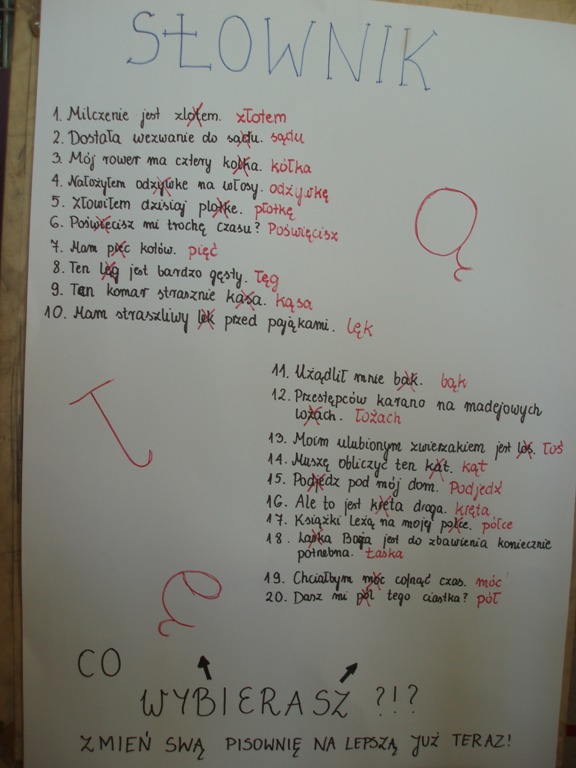 SŁOWNIK
1. Milczenie jest zlotem. złotem
2. Dostała wezwanie do sadu. sądu
3. Mój rower ma cztery kolka. kółka
4. Nałożyłem odzywke na włosy. odżywkę
5. Złowiłem dzisiaj plotke. płotkę
6. Poświecisz mi trochę czasu? Poświęcisz
7. Mam piec kotów. pięć
8. Ten leg jest bardzo gęsty. Łęg
9. Ten komar strasznie kasa. kąsa
10. Mam straszliwy lek przed pająkami. lęk
Ą
11. Użądlił mnie bak. bąk
12. Przestępców karano na madejowych
lożach. Łożach
13. Moim ulubionym zwierzakiem jest los. Łoś
14. Muszę obliczyć ten kat. kąt
15. Podjedz pod mój dom. Podjedź
16. Ale to jest kreta droga. kręta
17. Książki leżą na mojej polce. półce
18. Laska Boga jest do zbawienia koniecznie
potrzebna. Łaska
Ł
19. Chciałbym moc cofnąć czas. móc
20. Dasz mi pol tego ciastka? pół
Ę
CO
WYBIERASZ ?!?
ZMIEŃ SWĄ PISOWNIĘ NA LEPSZĄ JUŻ TERAZ!